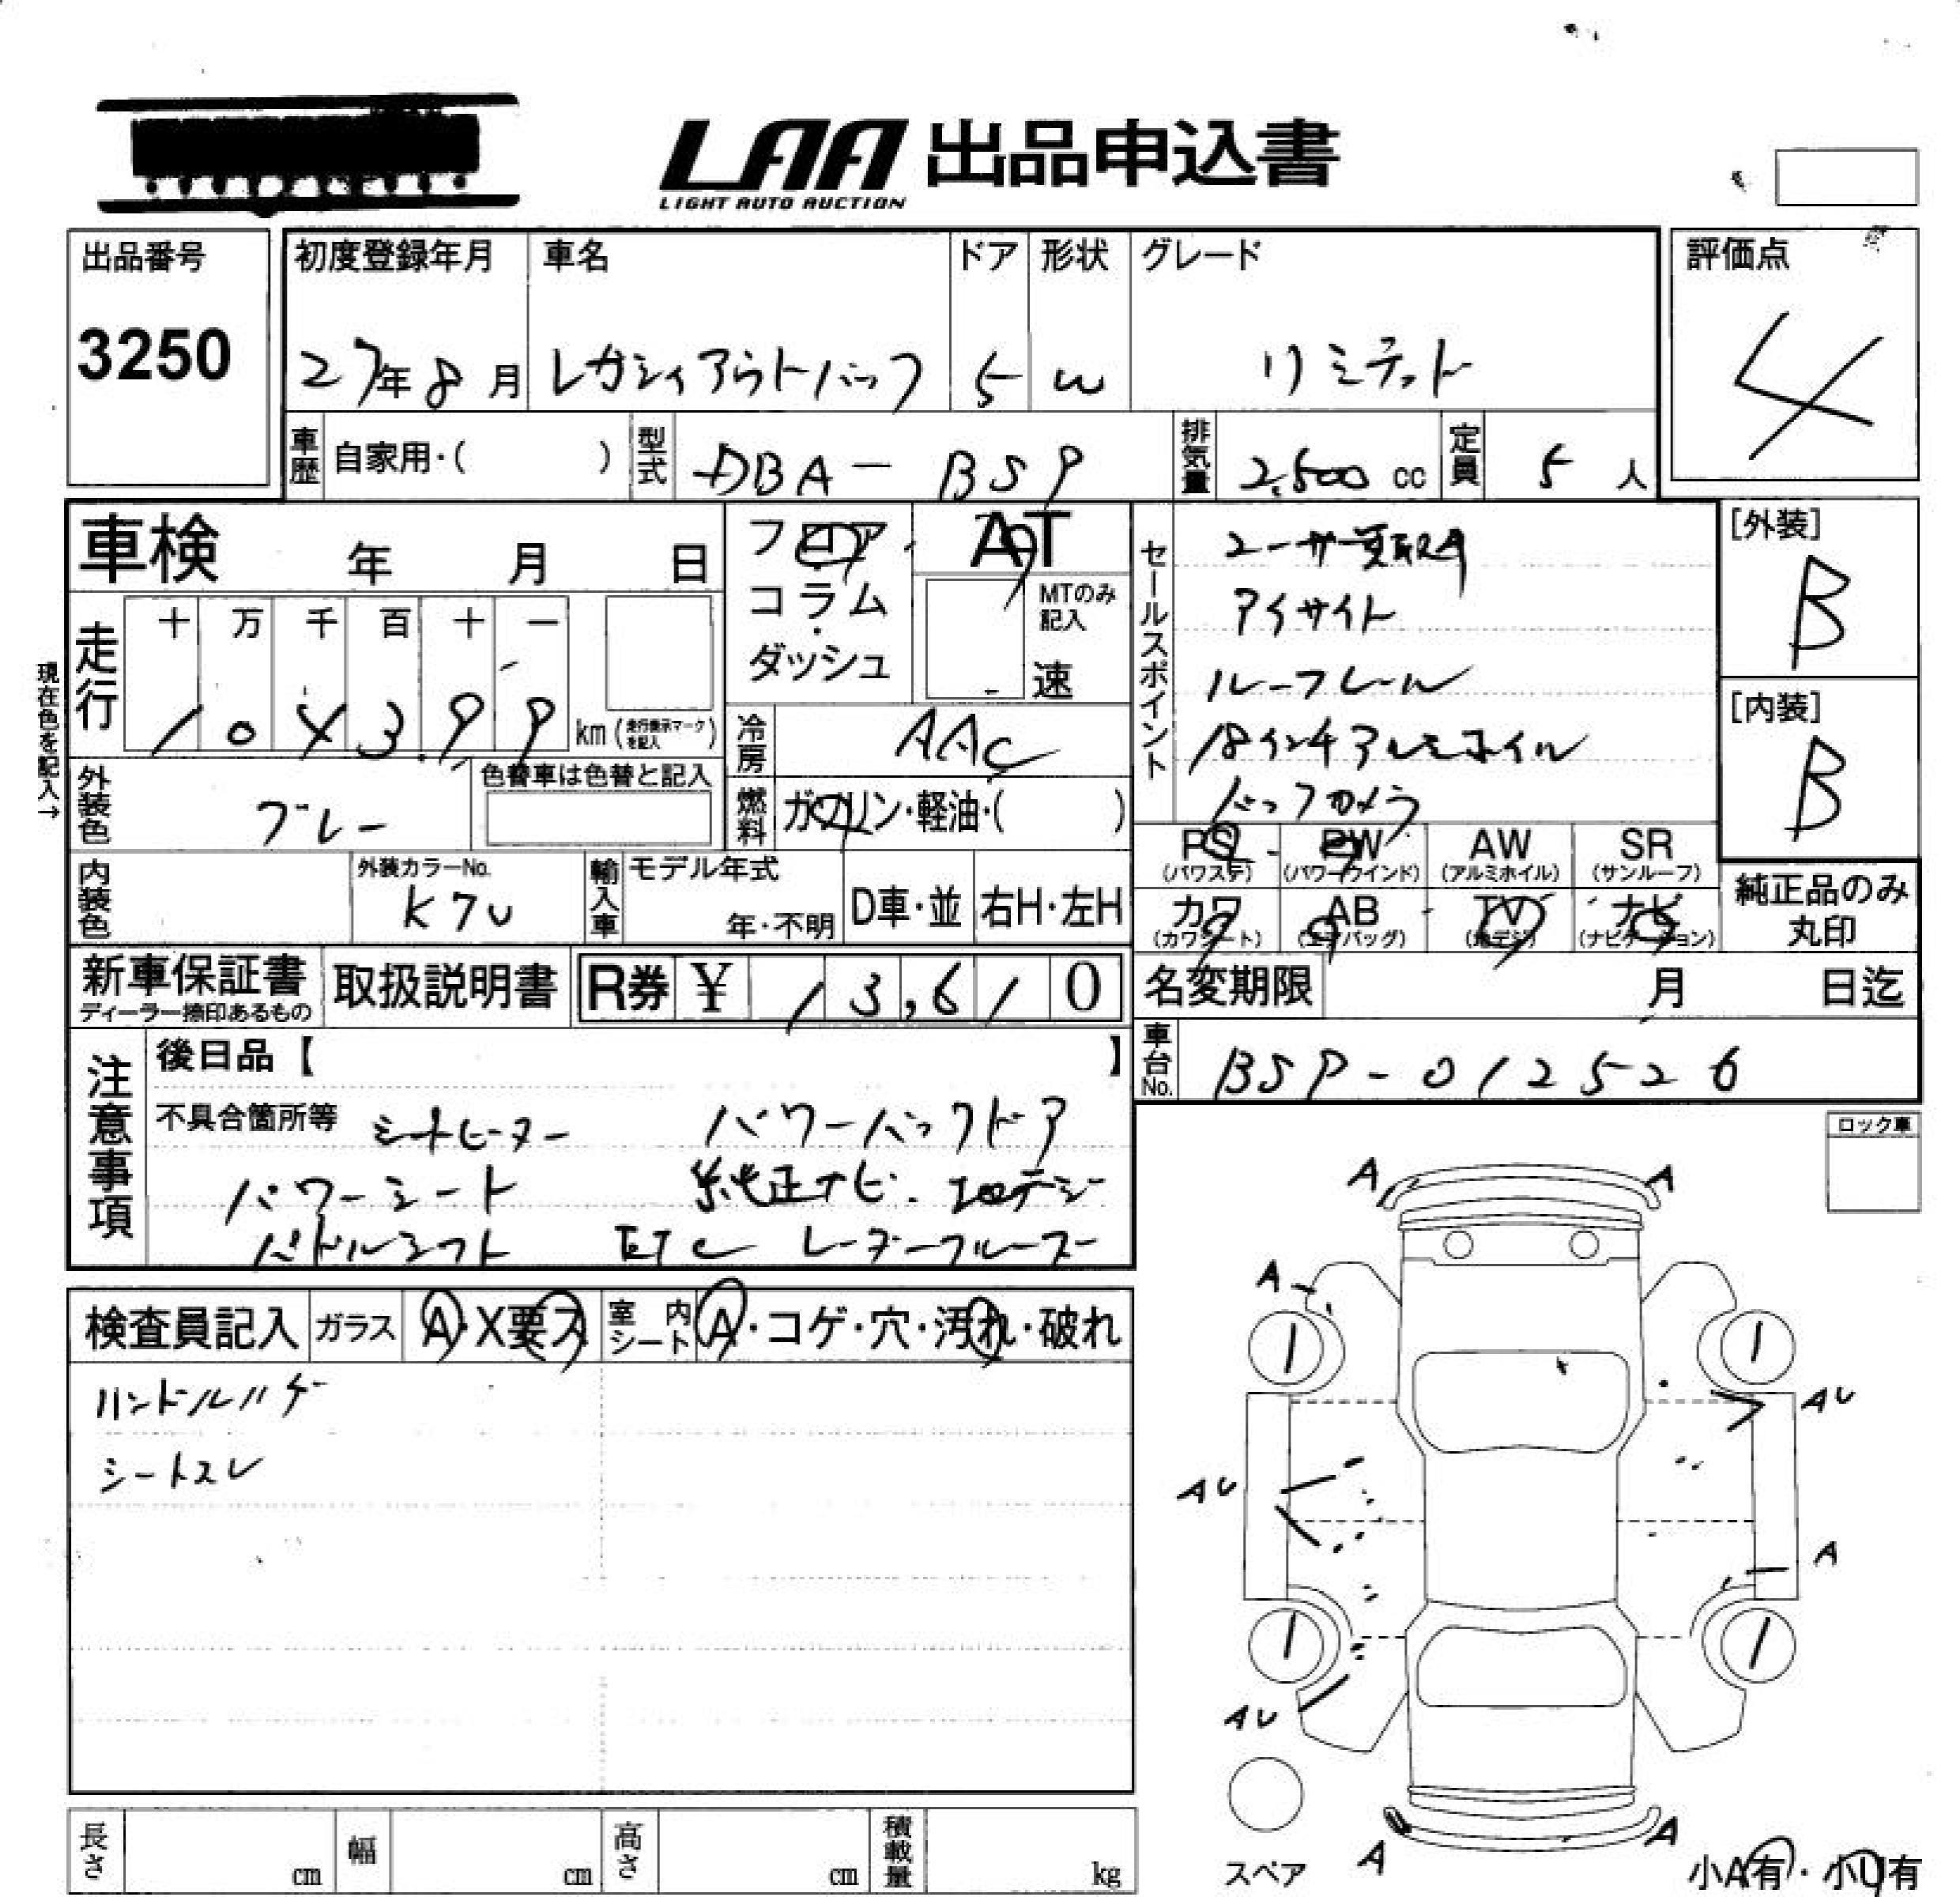 LAA 出品申込書
LIGHT AUTO AUCTION
出品番号
3250
初度登録年月 車名 ドア 形状 グレード
27年8月 レガシィアウトバック 5 W リミテッド
評価点
4
車歴 自家用・( ) 型式 DBA-BS9 排気量 2,500cc 定員 5人
車検 年 月 日
フロア・コラム・ダッシュ
AT
MTのみ記入
速
セールスポイント
ユーザー買取車
アイサイト
ルーフレール
18インチアルミホイル
バックカメラ
[外装]
B
[内装]
B
現在色を記入→
走行 十 万 千 百 十 一
104399 km (走行表示マークを記入)
冷房 AAC
外装色 グレー 色替車は色替と記入
燃料 ガソリン・軽油・( )
内装色 外装カラーNo. K7U
輸入車 モデル年式 年・不明 D車・並 右H・左H
PS (パワステ) PW (パワーウインド) AW (アルミホイル) SR (サンルーフ)
カワ (カワシート) AB (エアバッグ) TV (地デジ) ナビ (ナビゲーション)
純正品のみ丸印
新車保証書 ディーラー捺印あるもの 取扱説明書 R券 ¥ 13,610
名変期限 月 日迄
車台No. BS9-012526
注意事項
後日品【 】
不具合箇所等 シートヒーター パワーバックドア
パワーシート 純正ナビ.
パドルシフト ETC レーダークルーズ
ロック車
検査員記入 ガラス A・X要ス 室内シート A・コゲ・穴・汚れ・破れ
ハンドルハゲ
シートスレ
A A
A
AU
AU
A
AU
A A
スペア
小A有・小U有
長さ cm 幅 cm 高さ cm 積載量 kg